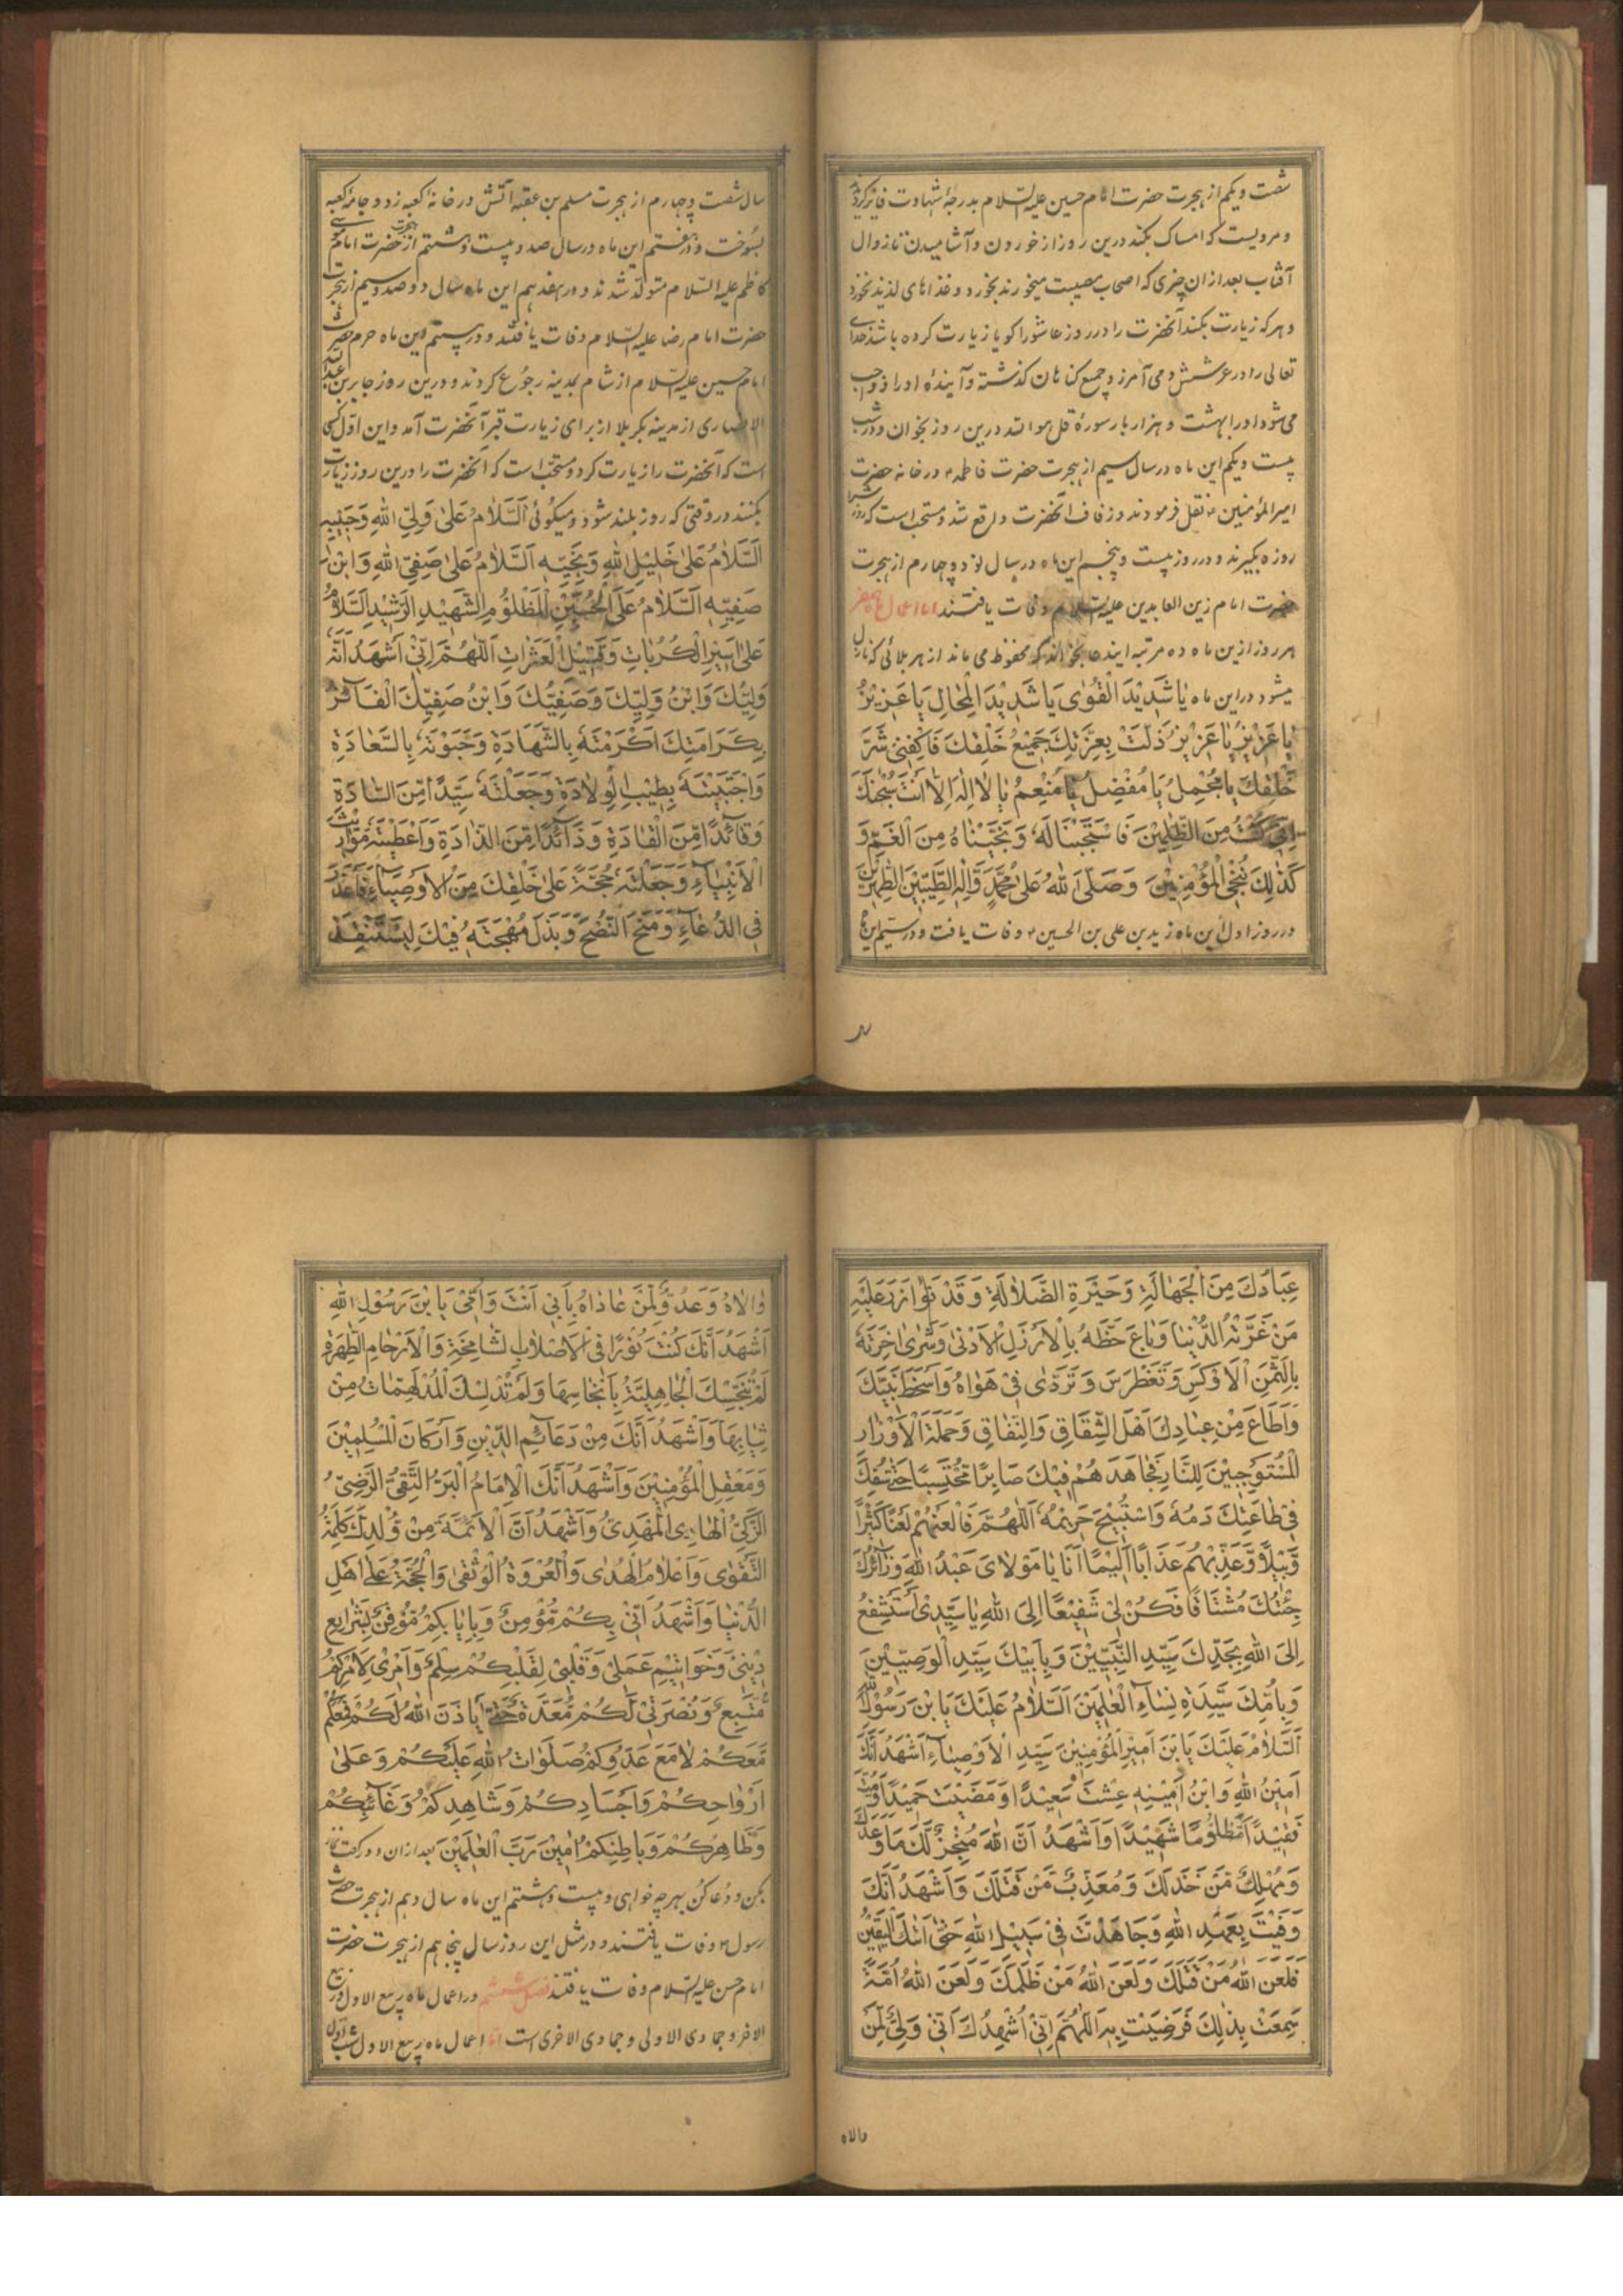 شصت و یکم از هجرت حضرت امام حسین علیه السّلام بدرجۀ شهادت فایز گردیدند
و مرویست که امساک بکند درین روز از خوردن و آشامیدن تا زوال
آفتاب بعد ازان چیزی که اصحاب مصیبت میخورند بخورد و غذاهای لذیذ نخورد
و هر که زیارت بکند آنحضرت را در روز عاشورا کویا زیارت کرده باشد خدای
تعالی را در عرشش و می آمرزد جمیع کناهان کذشته و آیندۀ او را و واجب
می شود او را بهشت و هزار بار سورۀ قل هو الله درین روز بخوان و در شب
بیست و یکم این ماه در سال سیم از هجرت حضرت فاطمه ع در خانه حضرت
امیر المؤمنین ع نقل فرمودند و زفاف آنحضرت واقع شد و مستحب است که روز
روزه بگیرند و در روز بیست و پنجم این ماه در سال نود و چهارم از هجرت
حضرت امام زین العابدین علیه السّلام وفات یافتند امّا اعمال ماه صفر
هر روز ازین ماه ده مرتبه ایندعا بخواند که محفوظ می ماند از هر بلائی که نازل
میشود در این ماه یَا شَدِیْدَ الْقُوٰی یَا شَدِیْدَ الْمِحَالِ یَا عَزِیْزُ
یَا عَزِیْزُ یَا عَزِیْزُ ذَلَّتْ بِعِزَّتِكَ جَمِیْعُ خَلْقِكَ فَاكْفِنِیْ شَرَّ
خَلْقِكَ یَا مُجْمِلُ یَا مُفْضِلُ یَا مُنْعِمُ یَا لَا اِلٰهَ اِلَّا اَنْتَ سُبْحٰنَكَ
اِنِّیْ كُنْتُ مِنَ الظّٰلِمِیْنَ فَاسْتَجَبْنَا لَهٗ وَنَجَّیْنَاهُ مِنَ الْغَمِّ وَ
كَذٰلِكَ نُنْجِی الْمُؤْمِنِیْنَ وَصَلَّی اللهُ عَلٰی مُحَمَّدٍ وَّاٰلِهِ الطَّیِّبِیْنَ الطّٰهِرِیْنَ
در روز اول این ماه زید بن علی بن الحسین ع وفات یافت و در سیم این ماه
سال شصت و چهارم از هجرت مسلم بن عقبه آتش در خانۀ کعبه زد و جامۀ کعبه
بسوخت و در هفتم این ماه در سال صد و بیست و هشتم از هجرت حضرت امام موسی
کاظم علیه السّلام متولد شدند و در هفدهم این ماه سال دو صد و سیم از هجرت
حضرت امام رضا علیه السّلام وفات یافتند و در بیستم این ماه حرم حضرت
امام حسین علیه السّلام از شام بمدینه رجوع کردند و درین روز جابر بن عبد الله
الانصاری از مدینه بکربلا از برای زیارت قبر آنحضرت آمد و این اوّل کسی
است که آنحضرت را زیارت کرد و مستحبّ است که آنحضرت را درین روز زیارت
بکنند در وقتی که روز بلند شود و میگوئی اَلسَّلَامُ عَلٰی وَلِیِّ اللهِ وَحَبِیْبِهٖ
اَلسَّلَامُ عَلٰی خَلِیْلِ اللهِ وَنَجِیِّهٖ اَلسَّلَامُ عَلٰی صَفِیِّ اللهِ وَابْنِ
صَفِیِّهٖ اَلسَّلَامُ عَلَی الْحُسَیْنِ الْمَظْلُوْمِ الشَّهِیْدِ الرَّشِیْدِ اَلسَّلَامُ
عَلٰی اَسِیْرِ الْكُرُبَاتِ وَقَتِیْلِ الْعَبَرَاتِ اَللّٰهُمَّ اِنِّیْ اَشْهَدُ اَنَّهٗ
وَلِیُّكَ وَابْنُ وَلِیِّكَ وَصَفِیُّكَ وَابْنُ صَفِیِّكَ الْفَآئِزُ
بِكَرَامَتِكَ اَكْرَمْتَهٗ بِالشَّهَادَةِ وَحَبَوْتَهٗ بِالسَّعَادَةِ
وَاجْتَبَیْتَهٗ بِطِیْبِ الْوِلَادَةِ وَجَعَلْتَهٗ سَیِّدًا مِّنَ السَّادَةِ
وَقَآئِدًا مِّنَ الْقَادَةِ وَذَآئِدًا مِّنَ الذَّادَةِ وَاَعْطَیْتَهٗ مَوَارِیْثَ
الْاَنْبِیَآءِ وَجَعَلْتَهٗ حُجَّةً عَلٰی خَلْقِكَ مِنَ الْاَوْصِیَآءِ فَاَعْذَرَ
فِی الدُّعَآءِ وَمَنَحَ النُّصْحَ وَبَذَلَ مُهْجَتَهٗ فِیْكَ لِیَسْتَنْقِذَ
عِبَادَكَ مِنَ الْجَهَالَةِ وَحَیْرَةِ الضَّلَالَةِ وَقَدْ تَوَازَرَ عَلَیْهِ
مَنْ غَرَّتْهُ الدُّنْیَا وَبَاعَ حَظَّهٗ بِالْاَرْذَلِ الْاَدْنٰی وَشَرٰی اٰخِرَتَهٗ
بِالثَّمَنِ الْاَوْكَسِ وَتَغَطْرَسَ وَتَرَدّٰی فِیْ هَوَاهُ وَاَسْخَطَ نَبِیَّكَ
وَاَطَاعَ مِنْ عِبَادِكَ اَهْلَ الشِّقَاقِ وَالنِّفَاقِ وَحَمَلَةَ الْاَوْزَارِ
الْمُسْتَوْجِبِیْنَ لِلنَّارِ فَجَاهَدَهُمْ فِیْكَ صَابِرًا مُّحْتَسِبًا حَتّٰی سُفِكَ
فِیْ طَاعَتِكَ دَمُهٗ وَاسْتُبِیْحَ حَرِیْمُهٗ اَللّٰهُمَّ فَالْعَنْهُمْ لَعْنًا كَثِیْرًا
وَّبِیْلًا وَّعَذِّبْهُمْ عَذَابًا اَلِیْمًا اَنَا یَا مَوْلَایَ عَبْدُ اللهِ وَزَآئِرُكَ
جِئْتُكَ مُشْتَاقًا فَكُنْ لِیْ شَفِیْعًا اِلَی اللهِ یَا سَیِّدِیْ اَسْتَشْفِعُ
اِلَی اللهِ بِجَدِّكَ سَیِّدِ النَّبِیِّیْنَ وَبِاَبِیْكَ سَیِّدِ الْوَصِیِّیْنَ
وَبِاُمِّكَ سَیِّدَةِ نِسَآءِ الْعٰلَمِیْنَ اَلسَّلَامُ عَلَیْكَ یَا بْنَ رَسُوْلِ اللهِ
اَلسَّلَامُ عَلَیْكَ یَا بْنَ اَمِیْرِ الْمُؤْمِنِیْنَ سَیِّدِ الْاَوْصِیَآءِ اَشْهَدُ اَنَّكَ
اَمِیْنُ اللهِ وَابْنُ اَمِیْنِهٖ عِشْتَ سَعِیْدًا وَمَضَیْتَ حَمِیْدًا وَمُتَّ
فَقِیْدًا مَّظْلُوْمًا شَهِیْدًا وَاَشْهَدُ اَنَّ اللهَ مُنْجِزٌ لَّكَ مَا وَعَدَكَ
وَمُهْلِكٌ مَّنْ خَذَلَكَ وَمُعَذِّبٌ مَّنْ قَتَلَكَ وَاَشْهَدُ اَنَّكَ
وَفَیْتَ بِعَهْدِ اللهِ وَجَاهَدْتَ فِیْ سَبِیْلِ اللهِ حَتّٰی اَتٰكَ الْیَقِیْنُ
فَلَعَنَ اللهُ مَنْ قَتَلَكَ وَلَعَنَ اللهُ مَنْ ظَلَمَكَ وَلَعَنَ اللهُ اُمَّةً
سَمِعَتْ بِذٰلِكَ فَرَضِیَتْ بِهٖ اَللّٰهُمَّ اِنِّیْ اُشْهِدُكَ اَنِّیْ وَلِیٌّ لِّمَنْ
والاه
وَالَاهُ وَعَدُوٌّ لِّمَنْ عَادَاهُ بِاَبِیْ اَنْتَ وَاُمِّیْ یَا بْنَ رَسُوْلِ اللهِ
اَشْهَدُ اَنَّكَ كُنْتَ نُوْرًا فِی الْاَصْلَابِ الشَّامِخَةِ وَالْاَرْحَامِ الطّٰهِرَةِ
لَمْ تُنَجِّسْكَ الْجَاهِلِیَّةُ بِاَنْجَاسِهَا وَلَمْ تُلْبِسْكَ الْمُدْلَهِمَّاتُ مِنْ
ثِیَابِهَا وَاَشْهَدُ اَنَّكَ مِنْ دَعَآئِمِ الدِّیْنِ وَاَرْكَانِ الْمُسْلِمِیْنَ
وَمَعْقِلِ الْمُؤْمِنِیْنَ وَاَشْهَدُ اَنَّكَ الْاِمَامُ الْبَرُّ التَّقِیُّ الرَّضِیُّ
الزَّكِیُّ الْهَادِی الْمَهْدِیُّ وَاَشْهَدُ اَنَّ الْاَئِمَّةَ مِنْ وُّلْدِكَ كَلِمَةُ
التَّقْوٰی وَاَعْلَامُ الْهُدٰی وَالْعُرْوَةُ الْوُثْقٰی وَالْحُجَّةُ عَلٰی اَهْلِ
الدُّنْیَا وَاَشْهَدُ اَنِّیْ بِكُمْ مُّؤْمِنٌ وَبِاِیَابِكُمْ مُّوْقِنٌ بِشَرَایِعِ
دِیْنِیْ وَخَوَاتِیْمِ عَمَلِیْ وَقَلْبِیْ لِقَلْبِكُمْ سِلْمٌ وَاَمْرِیْ لِاَمْرِكُمْ
مُّتَّبِعٌ وَنُصْرَتِیْ لَكُمْ مُّعَدَّةٌ حَتّٰی یَاْذَنَ اللهُ لَكُمْ فَمَعَكُمْ
مَّعَكُمْ لَا مَعَ عَدُوِّكُمْ صَلَوَاتُ اللهِ عَلَیْكُمْ وَعَلٰی
اَرْوَاحِكُمْ وَاَجْسَادِكُمْ وَشَاهِدِكُمْ وَغَآئِبِكُمْ
وَظَاهِرِكُمْ وَبَاطِنِكُمْ اٰمِیْنَ رَبَّ الْعٰلَمِیْنَ بعد ازان دو رکعت نماز
بکن و دعا کن بهر چه خواهی و بیست و هشتم این ماه سال دهم از هجرت حضرت
رسول ص وفات یافتند و در مثل این روز سال پنجاهم از هجرت حضرت
امام حسن علیه السّلام وفات یافتند فصل ششم در اعمال ماه ربیع الاول و ربیع
الاخر و جمادی الاولی و جمادی الاخری است امّا اعمال ماه ربیع الاول شب اول